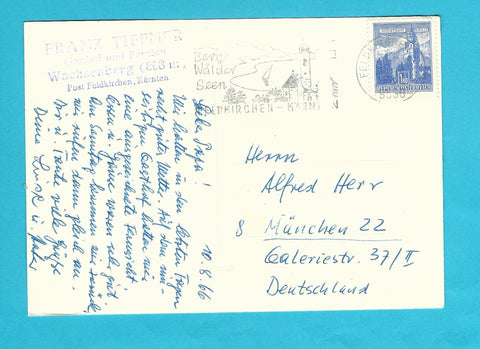 FRANZ TIEFNER
Gasthof und Pension
Wachsenberg (868 m)
Post Feldkirchen, Kärnten
Berge
Wälder
Seen
FELDKIRCHEN - KÄRNTEN
REPUBLIK ÖSTERREICH
10.8.66
Liebe Papa!
Wir hatten in den letzten Tagen
recht gutes Wetter. Auf dem
Gasthof hatten wir
eine ausgezeichnete Fernsicht
waren sehr gut
Am Sonntag kommen wir zurück,
wir rufen dann gleich an.
Dir u. Tante viele Grüße
Deine
Herrn
Alfred Herr
8 München 22
Galeriestr. 37/II
Deutschland